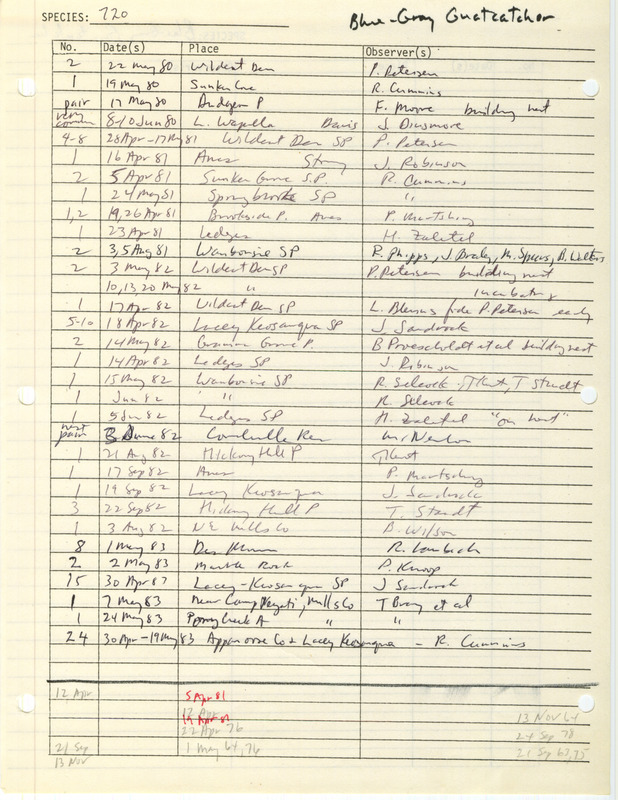 SPECIES: 720 Blue-Gray Gnatcatcher
No. Date(s) Place Observer(s)
2 22 May 80 Wildcat Den P. Petersen
1 19 May 80 Sunken Grove R. Cummins
pair 17 May 80 Dudgeon P F. Moore building nest
very common 8-10 Jun 80 L. Wapello Davis J. Dinsmore
4-8 28 Apr-17 May 81 Wildcat Den SP P. Petersen
1 16 Apr 81 Ames Story J. Robinson
2 5 Apr 81 Sunken Grove S.P. R. Cummins
1 24 May 81 Springbrook SP "
1,2 19,26 Apr 81 Brookside P. Ames P. Martsching
1 23 Apr 81 Ledges H. Zaletel
2 3,5 Aug 81 Waubonsie SP R. Phipps, J. Braley, M. Spears, B. Walters
2 3 May 82 Wildcat Den SP P. Petersen building nest
10,13 20 May 82 " incubating
1 17 Apr 82 Wildcat Den SP L. Blevins fide P. Petersen early
5-10 18 Apr 82 Lacey Keosauqua SP J. Sandrock
2 14 May 82 Grove P. B Proescholdt et al building nest
1 14 Apr 82 Ledges SP J. Robinson
1 15 May 82 Waubonsie SP R. Silcock, TKent, T Staudt
1 Jun 82 " " R Silcock
1 5 Jun 82 Ledges SP H. Zaletel "on nest"
nest pair 3 June 82 Coralville Res M. Newlon
1 21 Aug 82 Hickory Hill P TKent
1 17 Sep 82 Ames P. Martsching
1 19 Sep 82 Lacey Keosauqua J. Sandrock
3 22 Sep 82 Hickory Hill P T. Staudt
1 3 Aug 82 NE Mills Co B. Wilson
8 1 May 83 Des Moines R.
2 2 May 83 Marble Rock P. Knoop
15 30 Apr 87 Lacey-Keosauqua SP J Sandrock
1 7 May 83 Near Camp Wyati, Mills Co T Bray et al
1 24 May 83 Pony Creek A " "
24 30 Apr-19 May 83 Appanoose Co & Lacey Keosauqua - R. Cummins
12 Apr 5 Apr 81
12 Apr
14 Apr 82 13 Nov 64
22 Apr 76 24 Sep 78
21 Sep 1 May 64, 76 21 Sep 63, 75
13 Nov